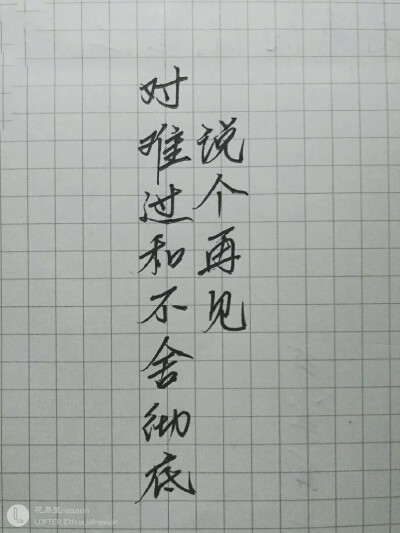 对难过和不舍彻底
说个再见
LOFTER